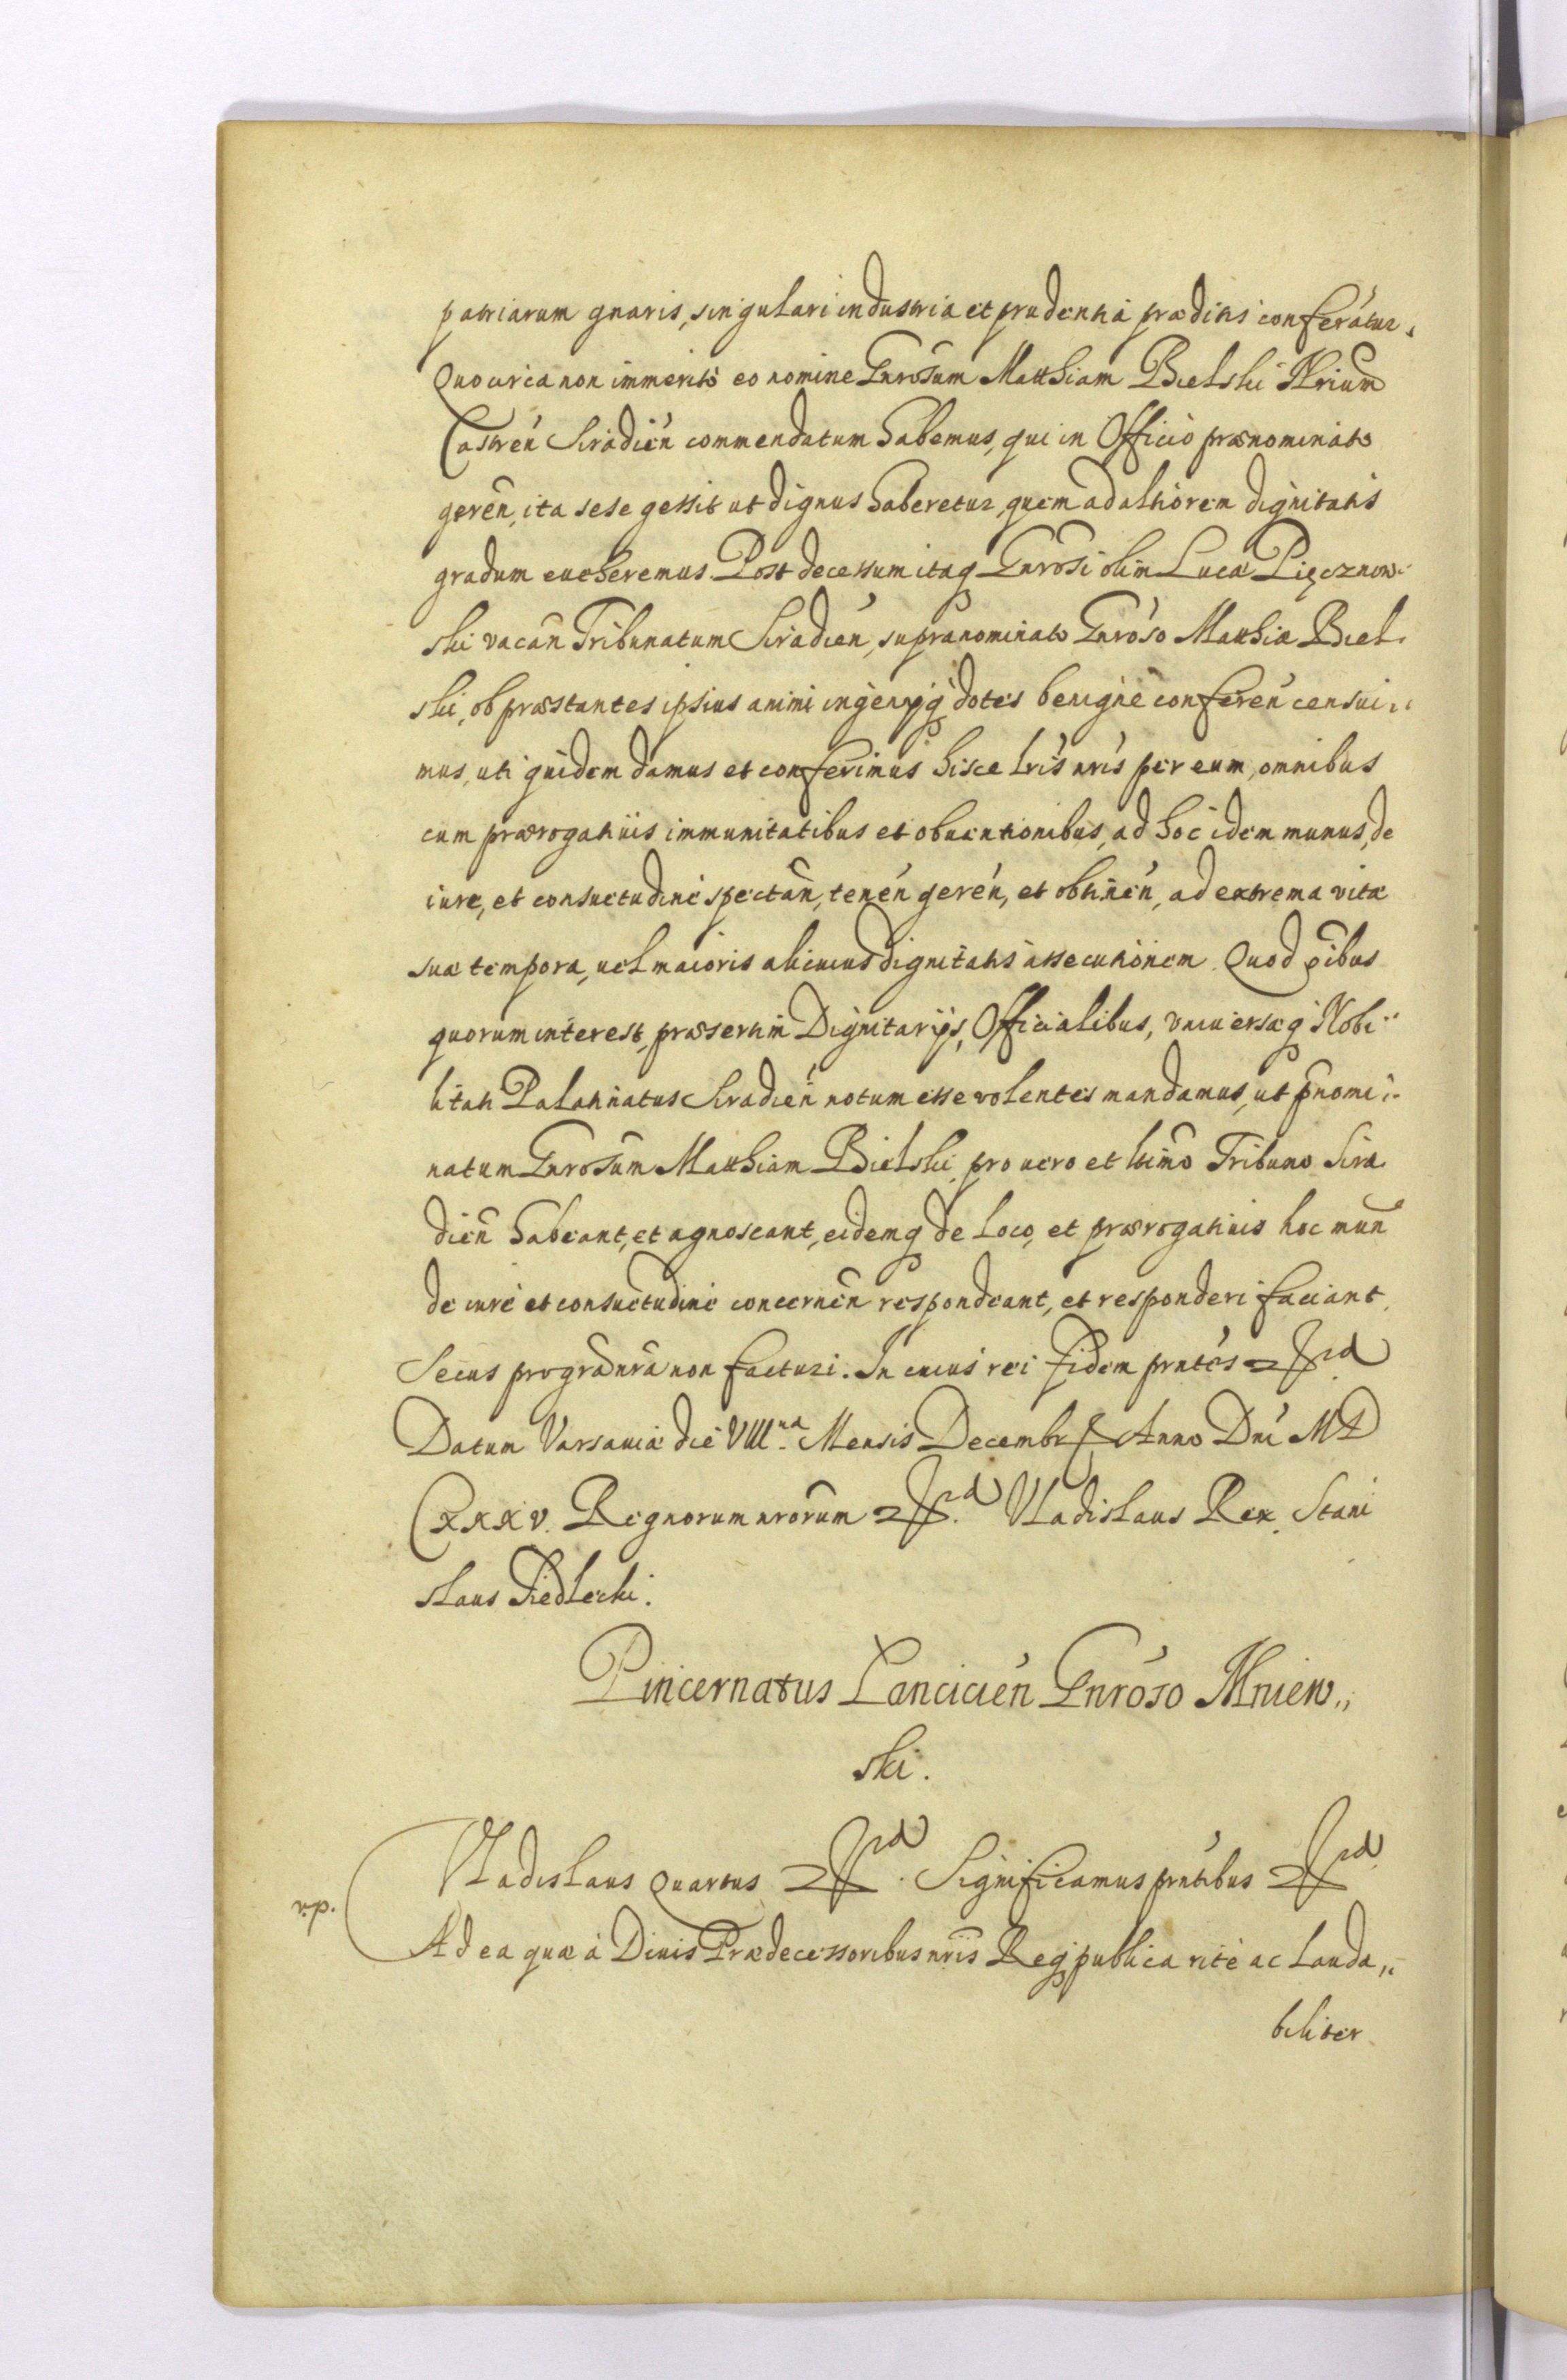 patriarum gnaris, singulari industria et prudentiá præditis conferátur.
Quocirca non immeritò eo nomine Gnrosum Matthiam Bielski Nrium
Castren Siradien commendatum habemus, qui in Officio prænominato
geren, ita sese gessit ut dignus haberetur, quem ad altiorem dignitatis
gradum eueheremus. Post decessum itaq Gnrosi olim Lucæ Pięcznow-
ski vacan Tribunatum Siradien, supranominato Gnroso Matthiæ Biel-
ski, ob præstantes ipsius animi ingenijq dotes benignè conferen censui-
mus, uti quidem damus et conferimus hisce lris nris per eum, omnibus
cum prærogatiuis immunitatibus et obuentionibus, ad hoc idem munus, de
iure, et consuetudine spectan, tenen geren, et obtinen, ad extrema vitæ
suæ tempora, uel maioris alicuius dignitatis assecutionem. Quod oibus
quorum interest, præsertim Dignitarijs, Officialibus, vniuersæq Nobi-
litati Palatinatus Siradien notum esse volentes mandamus, ut pnomi-
natum Gnrosum Matthiam Bielski, pro uero et ltimo Tribuno Sira
dien habeant, et agnoscant, eidemq de loco, et prærogatiuis hoc mun
de iure et consuetudine concernen respondeant, et responderi faciant.
Secus pro gra nra non facturi. In cuius rei fidem pntes &ra
Datum Varsauiæ die VIIIua Mensis Decembr Anno Dni MD
CXXXV. Regnorum nrorum &ra. Vladislaus Rex. Stani
slaus Siedlecki.
Pincernatus Lancicien Gnroso Mniew„
ski.
Vladislaus Quartus &ra. Significamus pntibus &ra.
Ad ea quæ à Diuis Prædecessoribus nris Regq publica ritè ac lauda„
biliter